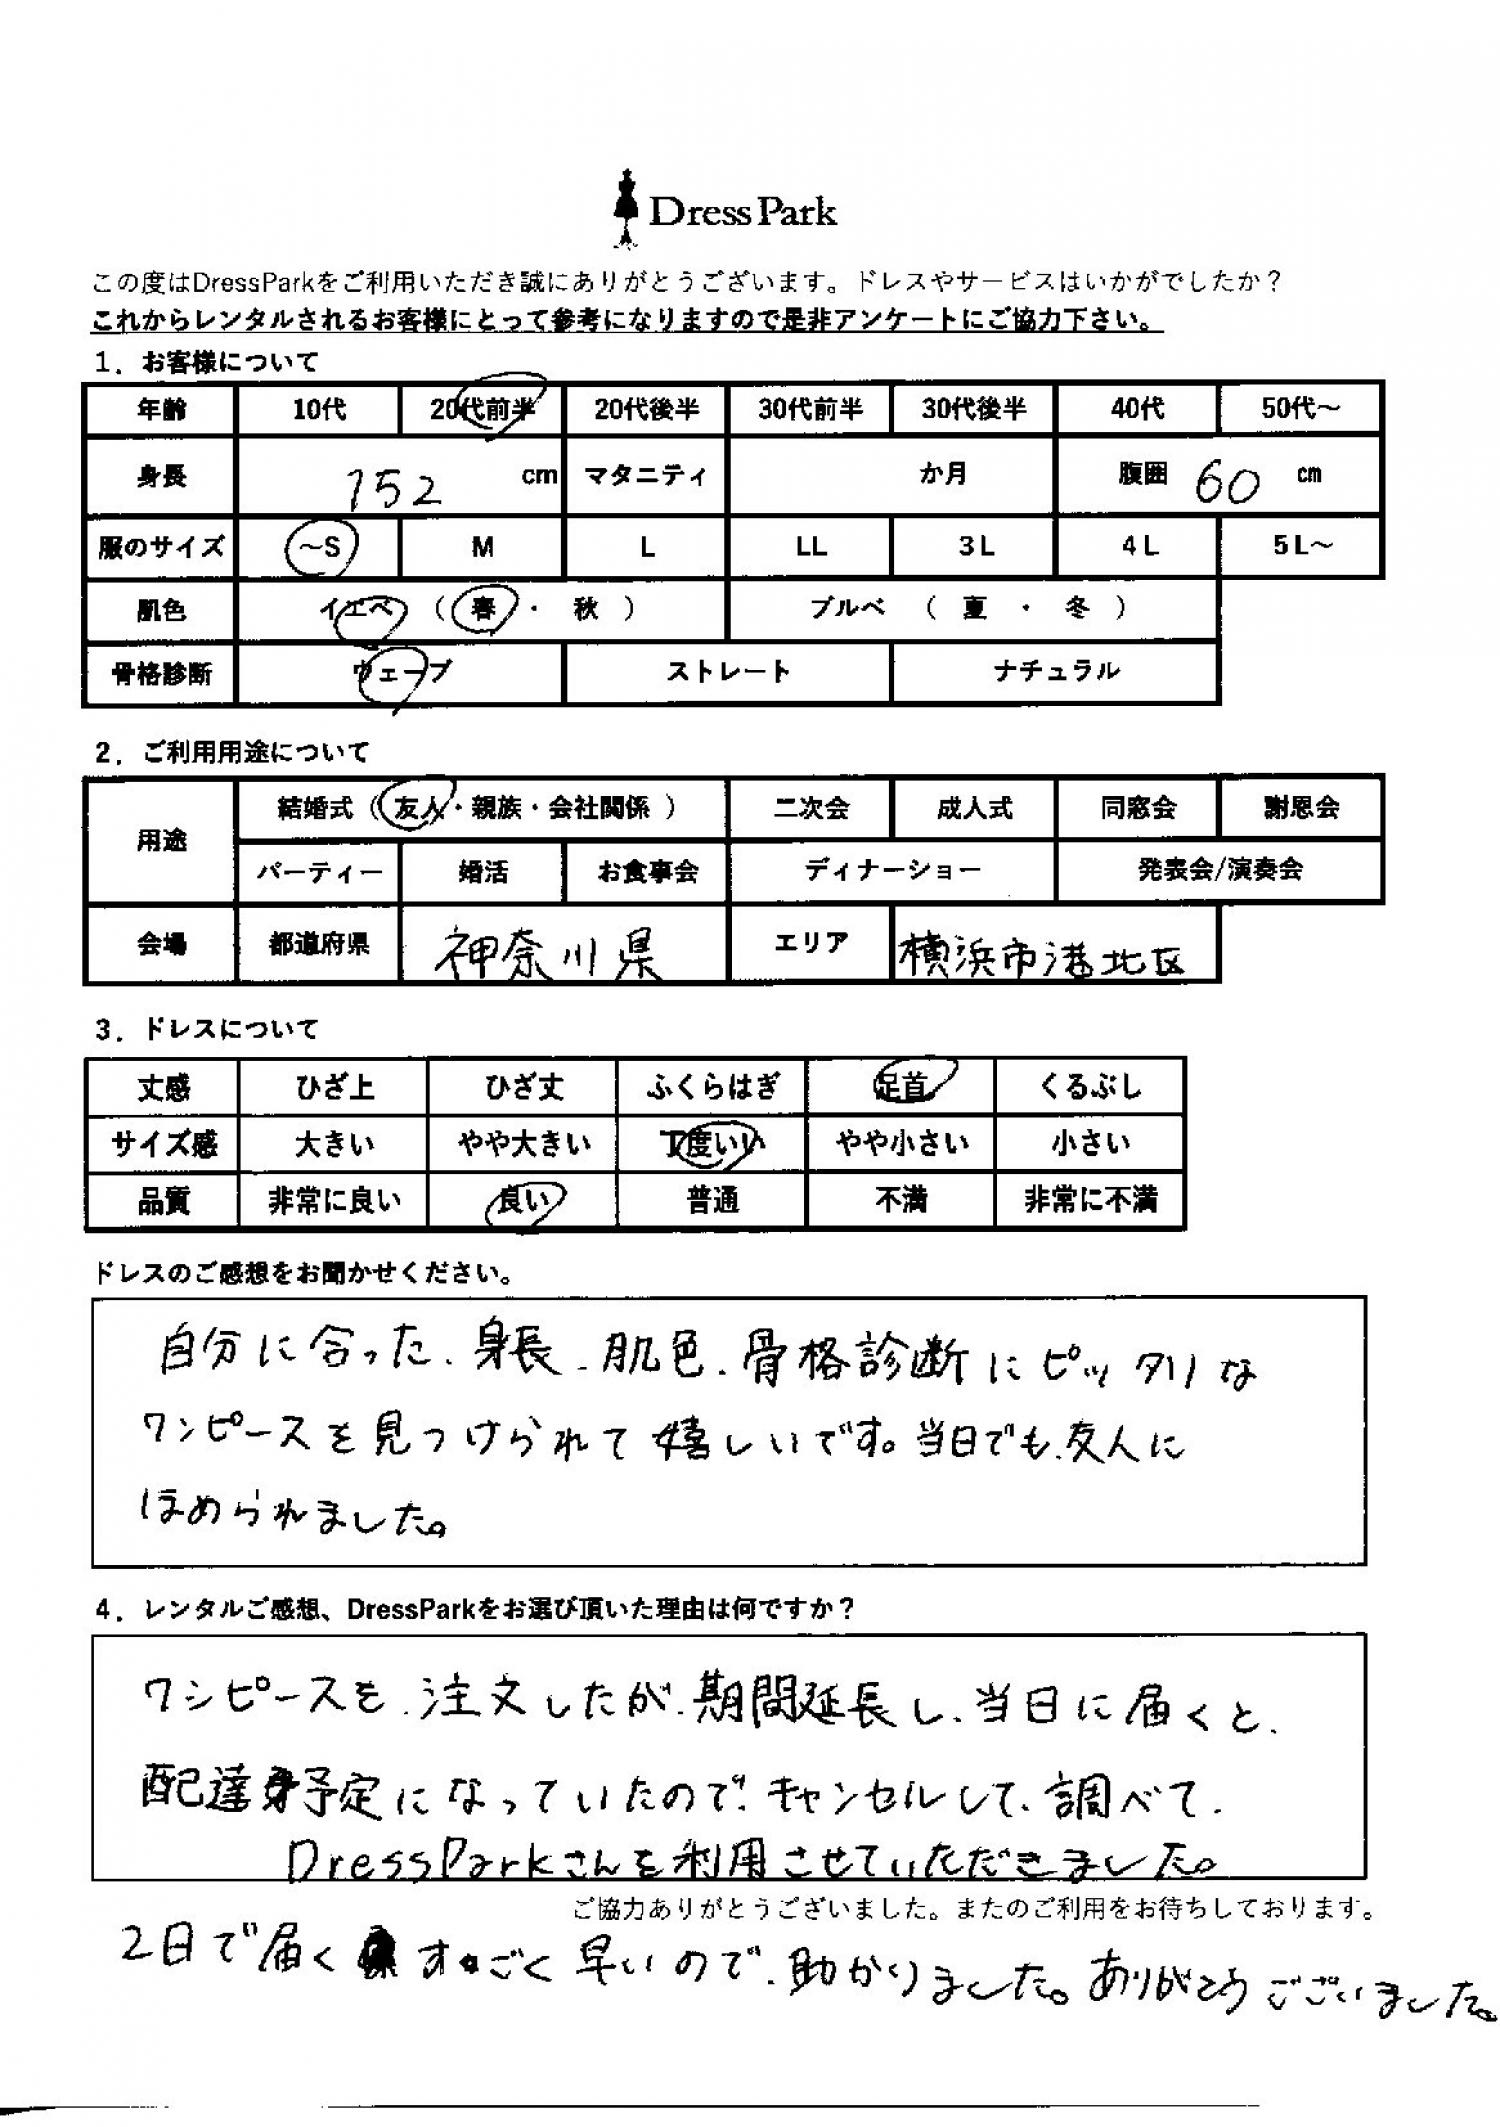 Dress Park
この度はDressParkをご利用いただき誠にありがとうございます。ドレスやサービスはいかがでしたか？
これからレンタルされるお客様にとって参考になりますので是非アンケートにご協力下さい。
1．お客様について
年齢 10代 20代前半 20代後半 30代前半 30代後半 40代 50代～
身長 152 cm マタニティ か月 腹囲 60 cm
服のサイズ ～S M L LL 3L 4L 5L～
肌色 イエベ（ 春 ・ 秋 ） ブルベ（ 夏 ・ 冬 ）
骨格診断 ウェーブ ストレート ナチュラル
2．ご利用用途について
用途 結婚式（ 友人・親族・会社関係 ） 二次会 成人式 同窓会 謝恩会
パーティー 婚活 お食事会 ディナーショー 発表会/演奏会
会場 都道府県 神奈川県 エリア 横浜市港北区
3．ドレスについて
丈感 ひざ上 ひざ丈 ふくらはぎ 足首 くるぶし
サイズ感 大きい やや大きい 丁度いい やや小さい 小さい
品質 非常に良い 良い 普通 不満 非常に不満
ドレスのご感想をお聞かせください。
自分に合った、身長、肌色、骨格診断にピッタリな
ワンピースを見つけられて嬉しいです。当日でも、友人に
ほめられました。
4．レンタルご感想、DressParkをお選び頂いた理由は何ですか？
ワンピースを、注文したが、期間延長し、当日に届くと、
配達予定になっていたので、キャンセルして、調べて、
DressParkさんを利用させていただきました。
ご協力ありがとうございました。またのご利用をお待ちしております。
2日で届く すごく早いので、助かりました。ありがとうございました。